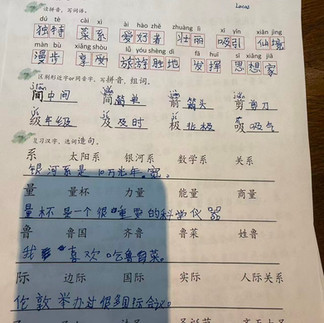 读拼音,写词语。
Lucas
dú tè cài xì ài hào zhě zhuàng lì xī yǐn xiān jìng
独特 菜系 爱好者 壮丽 吸引 仙境
màn bù xiǎng shòu lǚ yóu shèng dì fā huī sī xiǎng jiā
漫步 享受 旅游胜地 发挥 思想家
区别形近字和同音字,写拼音,组词。
间 中间 简 简单 箭 箭头 剪 剪刀
级 年级 及 及时 极 北极 吸 吸气
复习汉字,选词造句。
系 太阳系 银河系 数学系 关系
银河系是一个万光年宽。
量 量杯 力量 能量 商量
量杯是一个很重要的科学仪器
鲁 鲁国 齐鲁 鲁菜 姓鲁
我喜欢吃鲁菜。
际 边际 国际 实际 人际关系
伦敦举办过很多国际会议。